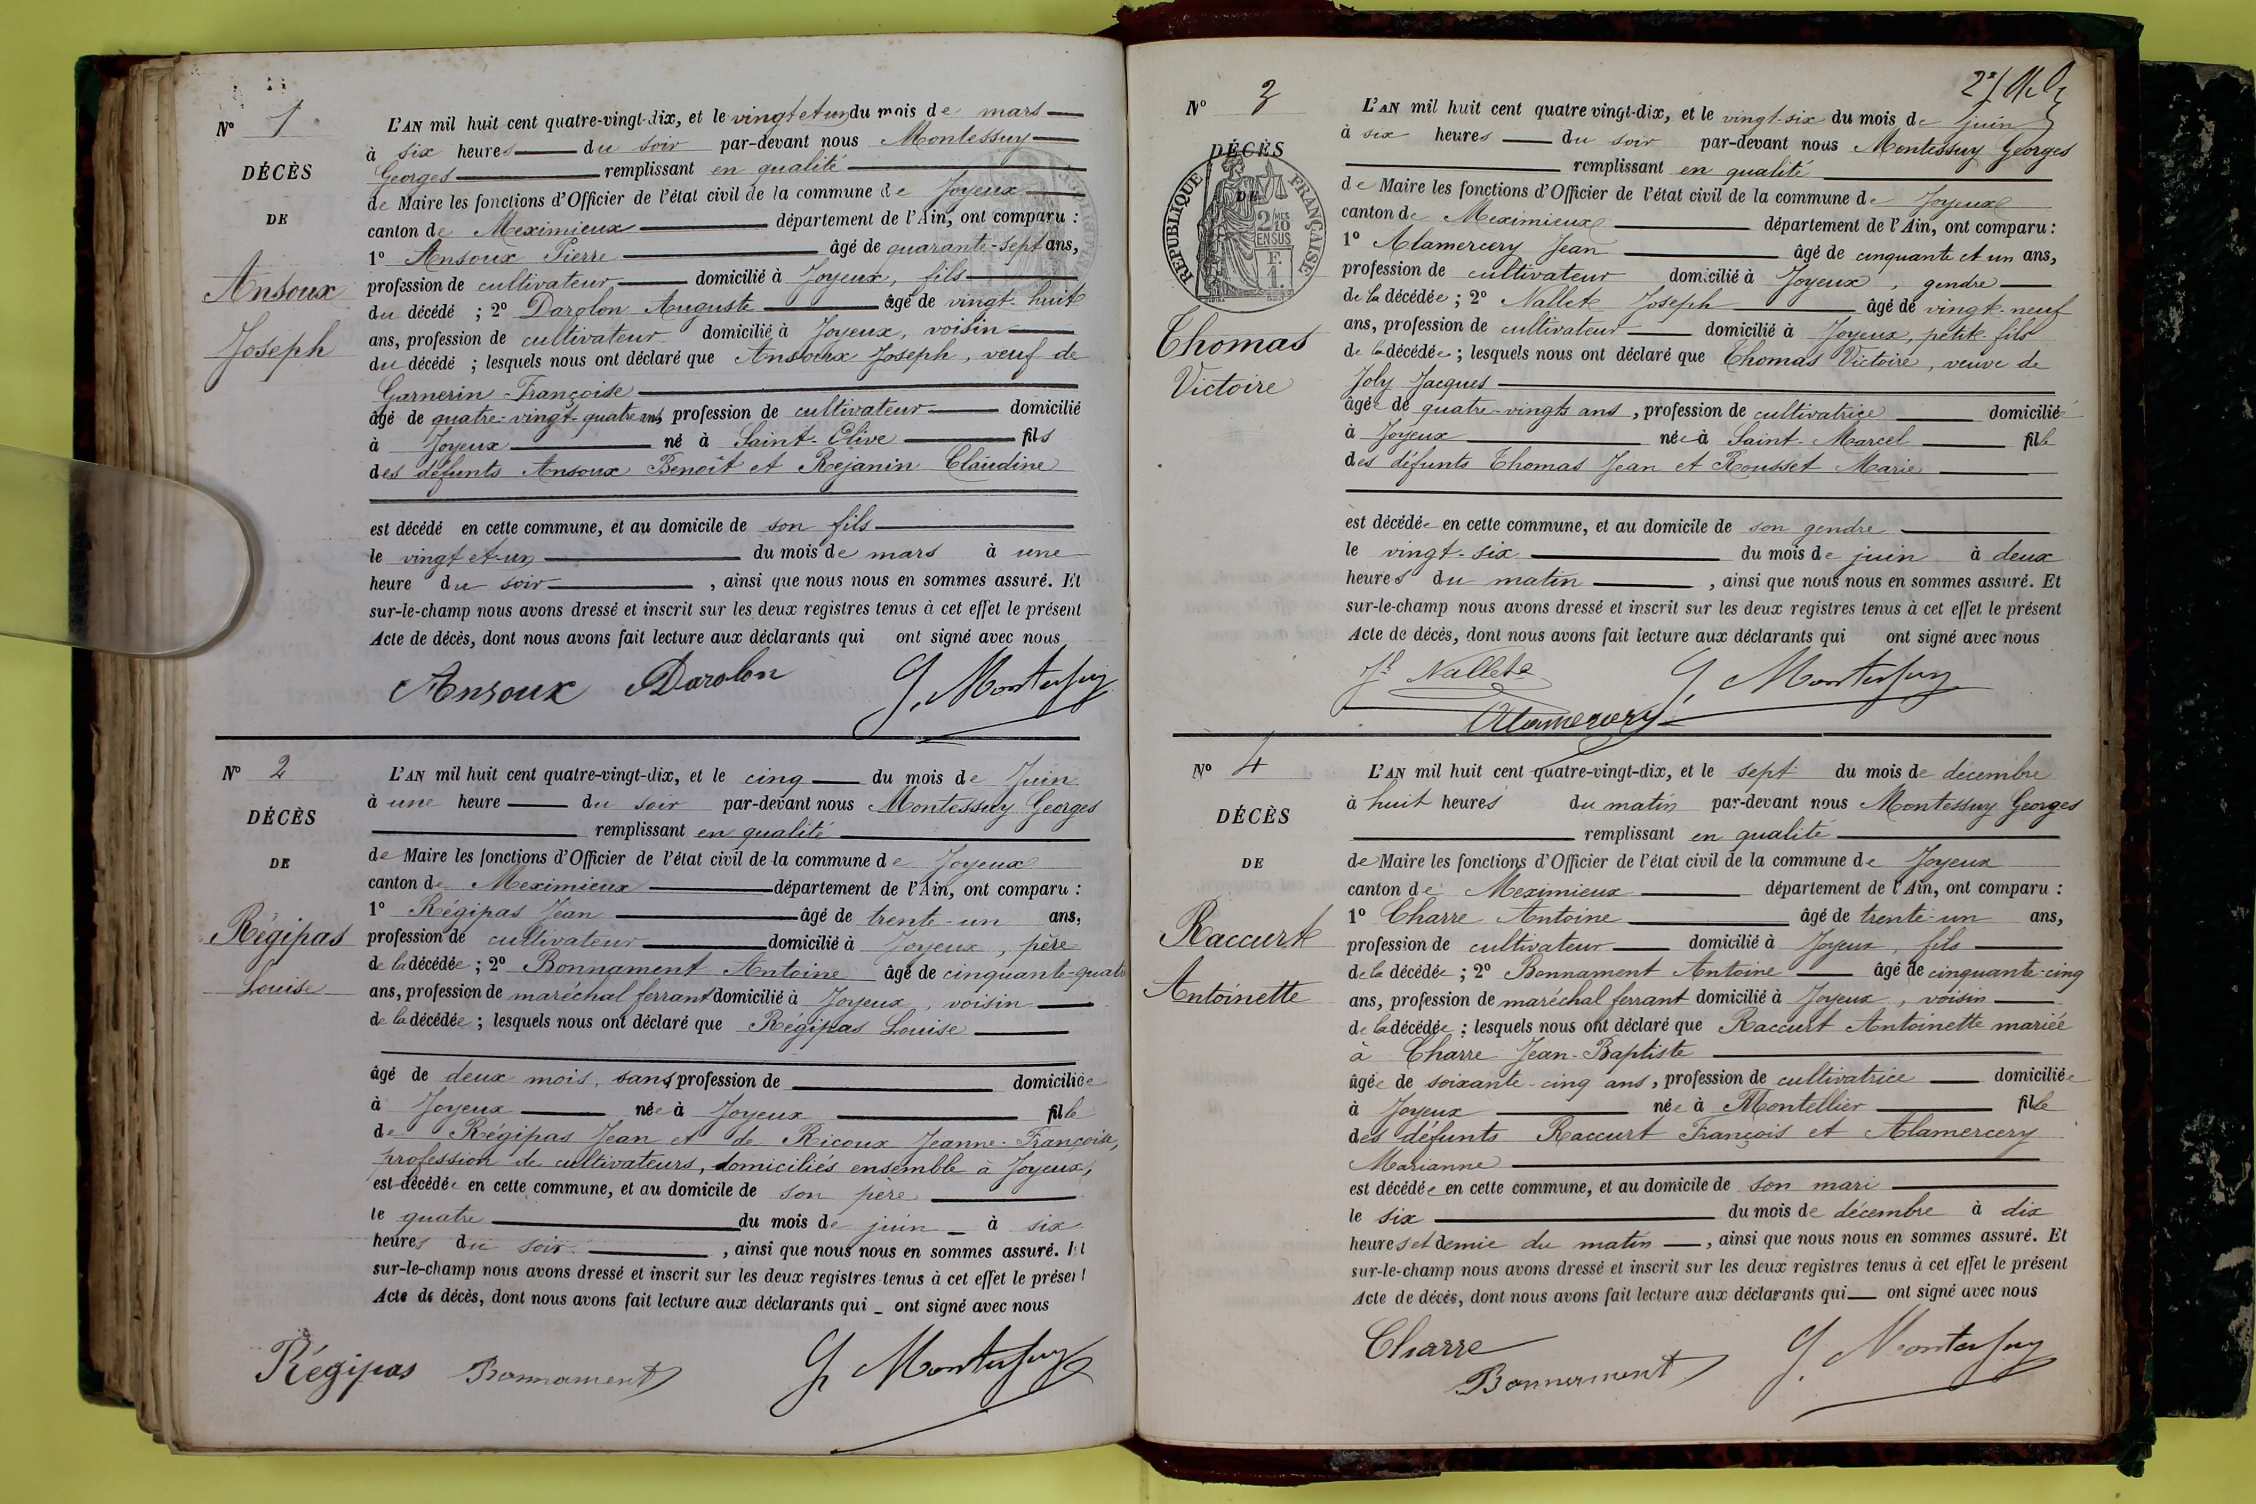 N° 1
DÉCÈS
DE
Ansoux
Joseph
L'AN mil huit cent quatre-vingt-dix, et le vingt et un du mois de mars
à six heures du soir par-devant nous Montessuy
Georges remplissant en qualité
de Maire les fonctions d'Officier de l'état civil de la commune de Joyeux
canton de Meximieux département de l'Ain, ont comparu :
1° Ansoux Pierre âgé de quarante-sept ans,
profession de cultivateur domicilié à Joyeux, fils
du décédé ; 2° Darolon Auguste âgé de vingt-huit
ans, profession de cultivateur domicilié à Joyeux, voisin
du décédé ; lesquels nous ont déclaré que Ansoux Joseph, veuf de
Garnerin Françoise
âgé de quatre-vingt-quatre ans, profession de cultivateur domicilié
à Joyeux né à Saint-Olive fils
des défunts Ansoux Benoît et Rejanin Claudine
est décédé en cette commune, et au domicile de son fils
le vingt et-un du mois de mars à une
heure du soir, ainsi que nous nous en sommes assuré. Et
sur-le-champ nous avons dressé et inscrit sur les deux registres tenus à cet effet le présent
Acte de décès, dont nous avons fait lecture aux déclarants qui ont signé avec nous
Ansoux Darolon G. Montessuy
N° 2
DÉCÈS
DE
Régipas
Louise
L'AN mil huit cent quatre-vingt-dix, et le cinq du mois de Juin
à une heure du soir par-devant nous Montessuy Georges
remplissant en qualité
de Maire les fonctions d'Officier de l'état civil de la commune de Joyeux
canton de Meximieux département de l'Ain, ont comparu :
1° Régipas Jean âgé de trente-un ans,
profession de cultivateur domicilié à Joyeux, père
de la décédée ; 2° Bonnament Antoine âgé de cinquante-quatre
ans, profession de maréchal ferrant domicilié à Joyeux, voisin
de la décédée ; lesquels nous ont déclaré que Régipas Louise
âgé de deux mois, sans profession de domiciliée
à Joyeux née à Joyeux fille
de Régipas Jean et de Ricoux Jeanne-Françoise,
profession de cultivateurs, domiciliés ensemble à Joyeux,
est décédée en cette commune, et au domicile de son père
le quatre du mois de juin à six
heures du soir, ainsi que nous nous en sommes assuré. Et
sur-le-champ nous avons dressé et inscrit sur les deux registres tenus à cet effet le présent
Acte de décès, dont nous avons fait lecture aux déclarants qui ont signé avec nous
Régipas Bonnament G. Montessuy
N° 3
DÉCÈS
DE
RÉPUBLIQUE FRANÇAISE
2/10 EN SUS
Thomas
Victoire
L'AN mil huit cent quatre vingt-dix, et le vingt-six du mois de juin
à six heures du soir par-devant nous Montessuy Georges
remplissant en qualité
de Maire les fonctions d'Officier de l'état civil de la commune de Joyeux
canton de Meximieux département de l'Ain, ont comparu :
1° Alamercery Jean âgé de cinquante et un ans,
profession de cultivateur domicilié à Joyeux, gendre
de la décédée ; 2° Nallet Joseph âgé de vingt-neuf
ans, profession de cultivateur domicilié à Joyeux, petit-fils
de la décédée ; lesquels nous ont déclaré que Thomas Victoire, veuve de
Joly Jacques
âgée de quatre-vingts ans, profession de cultivatrice domiciliée
à Joyeux née à Saint-Marcel fille
des défunts Thomas Jean et Rousset Marie
est décédée en cette commune, et au domicile de son gendre
le vingt-six du mois de juin à deux
heures du matin, ainsi que nous nous en sommes assuré. Et
sur-le-champ nous avons dressé et inscrit sur les deux registres tenus à cet effet le présent
Acte de décès, dont nous avons fait lecture aux déclarants qui ont signé avec nous
Jh Nallet G. Montessuy
Alamercery
N° 4
DÉCÈS
DE
Raccurt
Antoinette
L'AN mil huit cent quatre-vingt-dix, et le sept du mois de décembre
à huit heures du matin par-devant nous Montessuy Georges
remplissant en qualité
de Maire les fonctions d'Officier de l'état civil de la commune de Joyeux
canton de Meximieux département de l'Ain, ont comparu :
1° Charre Antoine âgé de trente-un ans,
profession de cultivateur domicilié à Joyeux, fils
de la décédée ; 2° Bonnament Antoine âgé de cinquante-cinq
ans, profession de maréchal ferrant domicilié à Joyeux, voisin
de la décédée ; lesquels nous ont déclaré que Raccurt Antoinette mariée
à Charre Jean-Baptiste
âgée de soixante-cinq ans, profession de cultivatrice domiciliée
à Joyeux née à Montellier fille
des défunts Raccurt François et Alamercery
Marianne
est décédée en cette commune, et au domicile de son mari
le six du mois de décembre à dix
heures et demie du matin, ainsi que nous nous en sommes assuré. Et
sur-le-champ nous avons dressé et inscrit sur les deux registres tenus à cet effet le présent
Acte de décès, dont nous avons fait lecture aux déclarants qui ont signé avec nous
Charre G. Montessuy
Bonnament